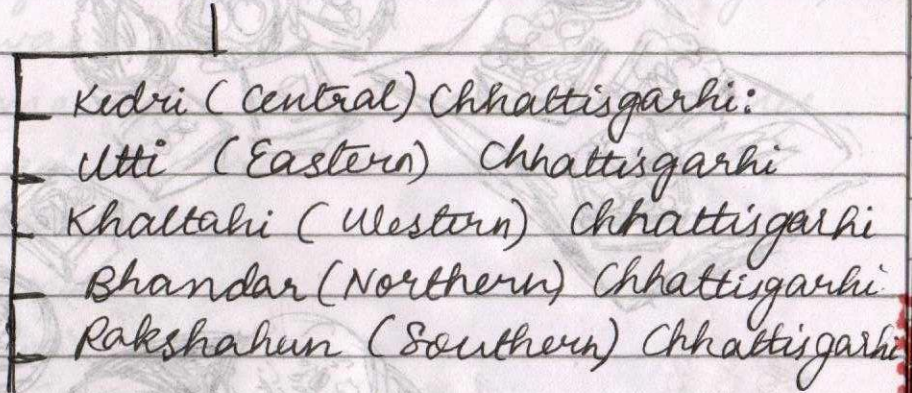 Kedri (Central) Chhattisgarhi:
Utti (Eastern) Chhattisgarhi
Khaltahi (Western) Chhattisgarhi
Bhandar (Northern) Chhattisgarhi
Rakshahun (Southern) Chhattisgarhi